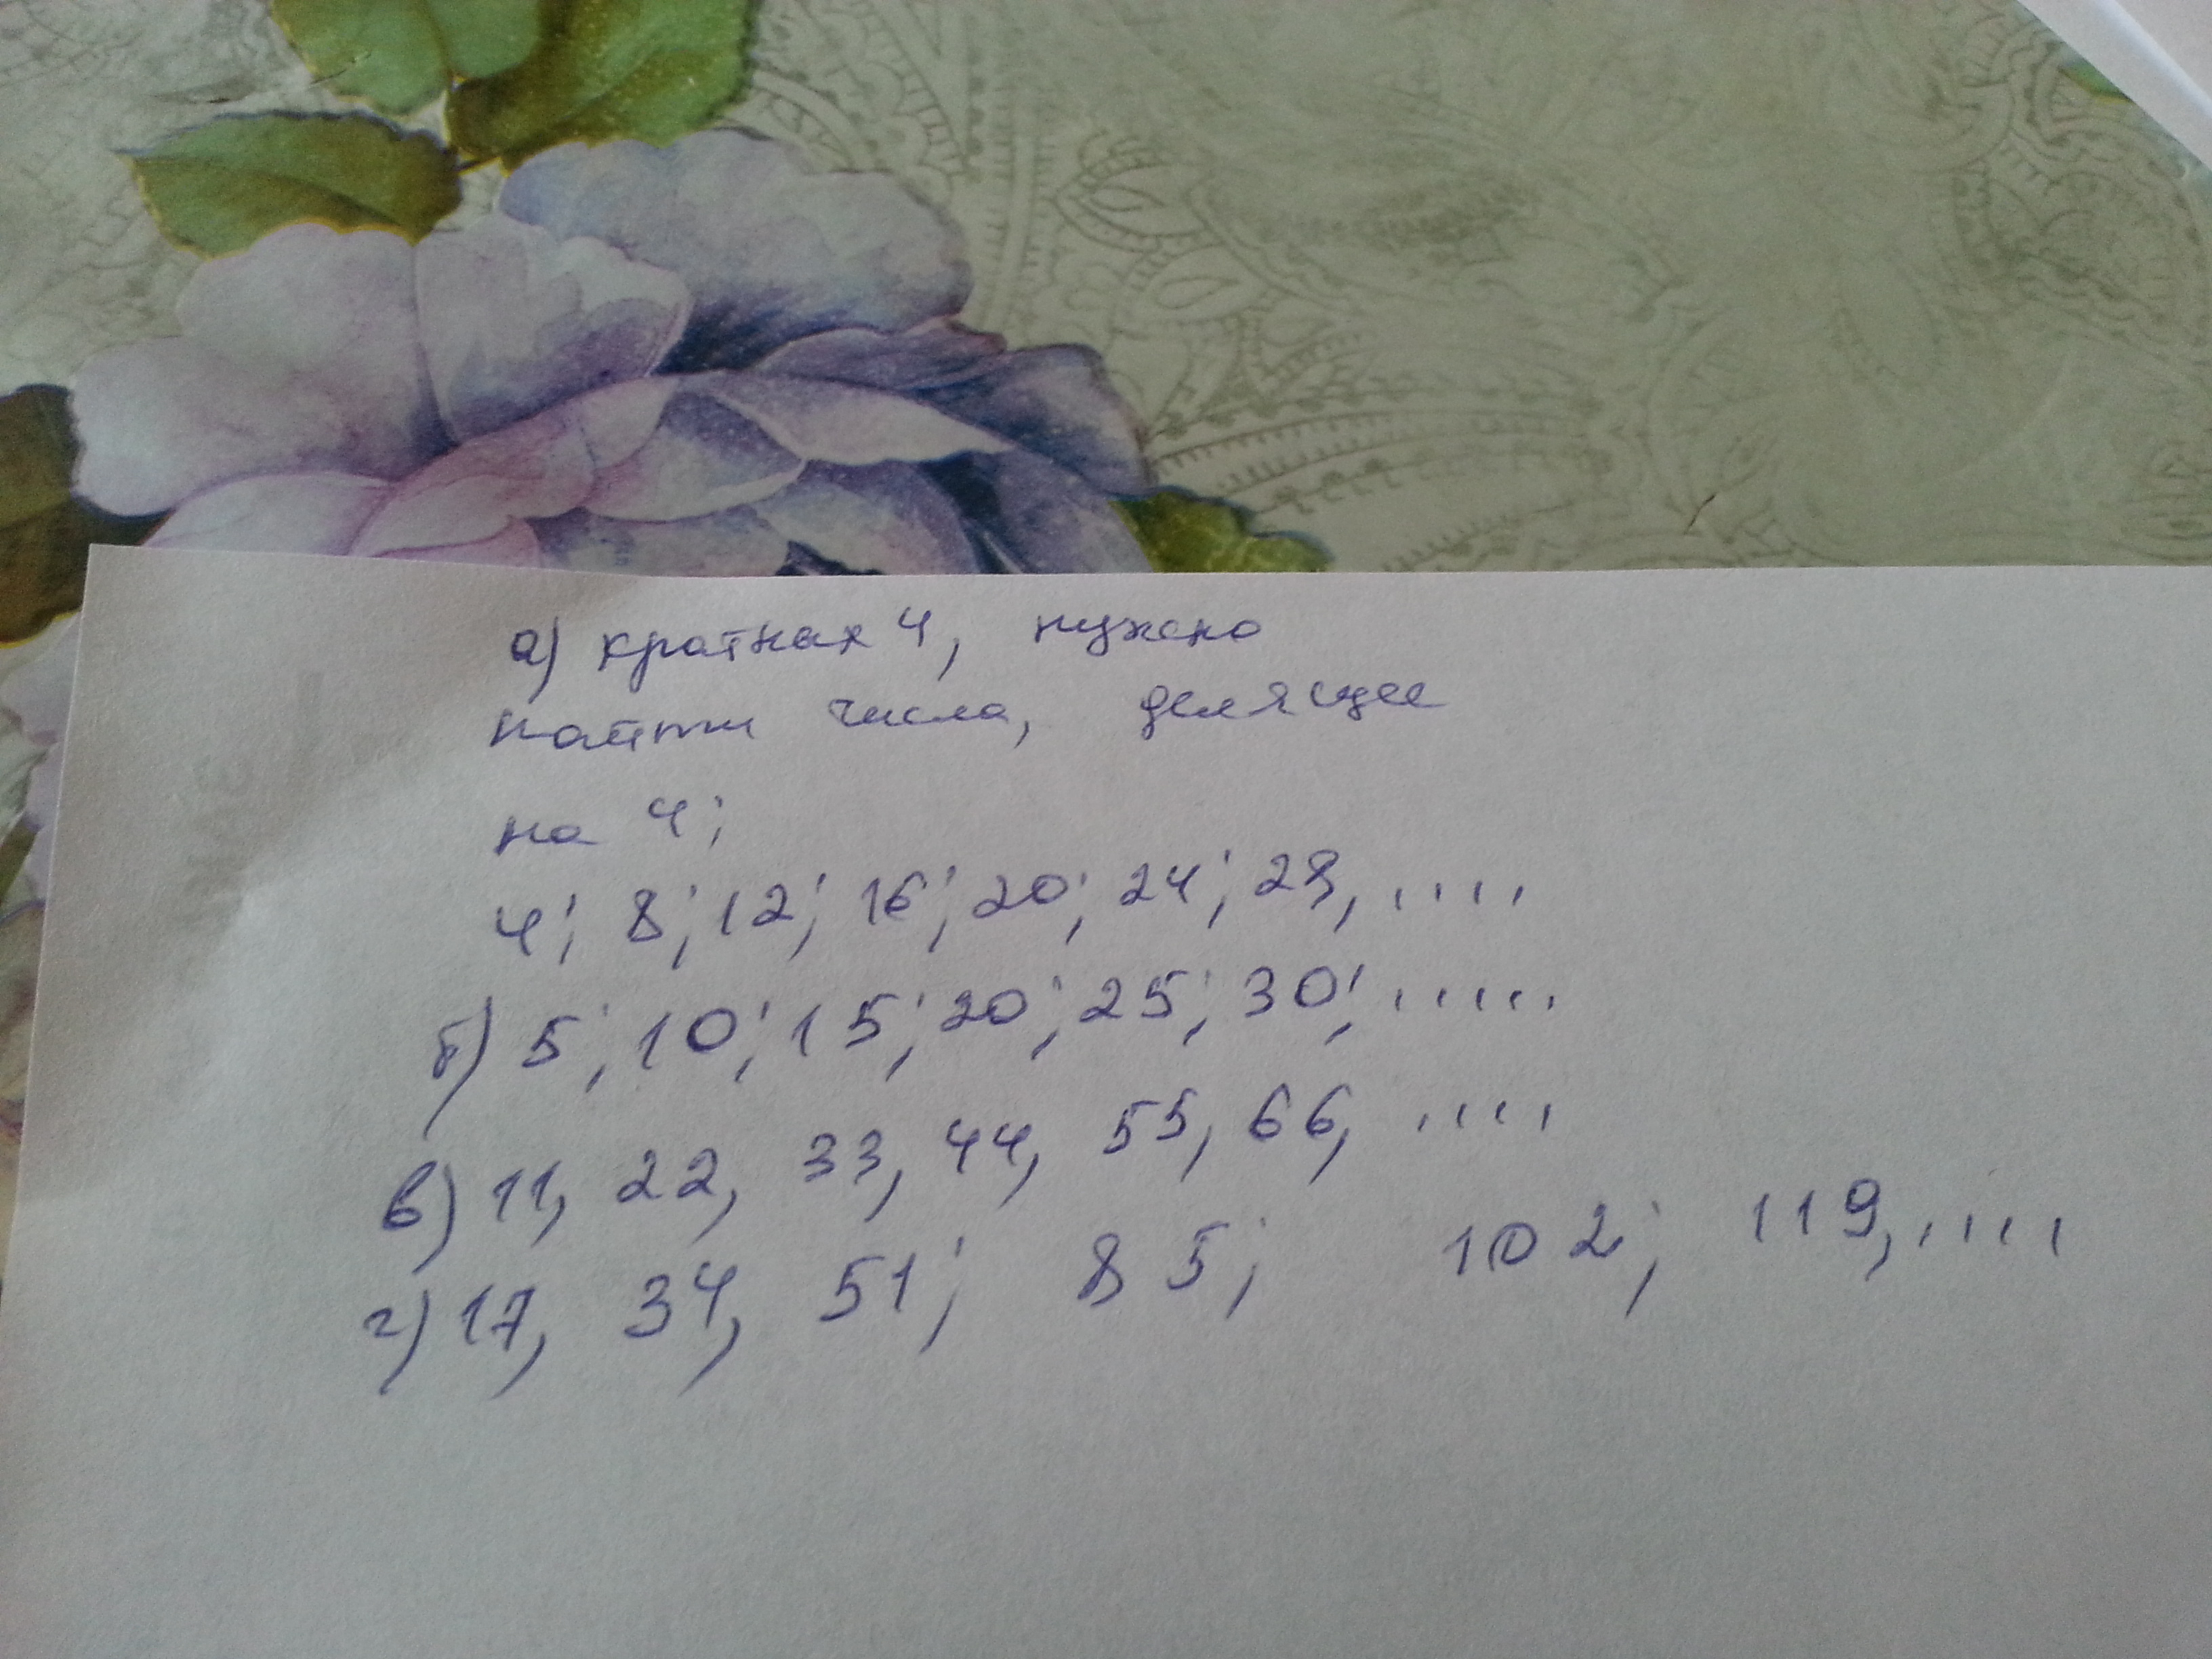 а) кратная 4, нужно
найти числа, делящее
на 4;
4; 8; 12; 16; 20; 24; 28, ....
б) 5; 10; 15; 20; 25; 30; .....
в) 11, 22, 33, 44, 55, 66, ....
г) 17, 34, 51; 85; 102; 119, ....